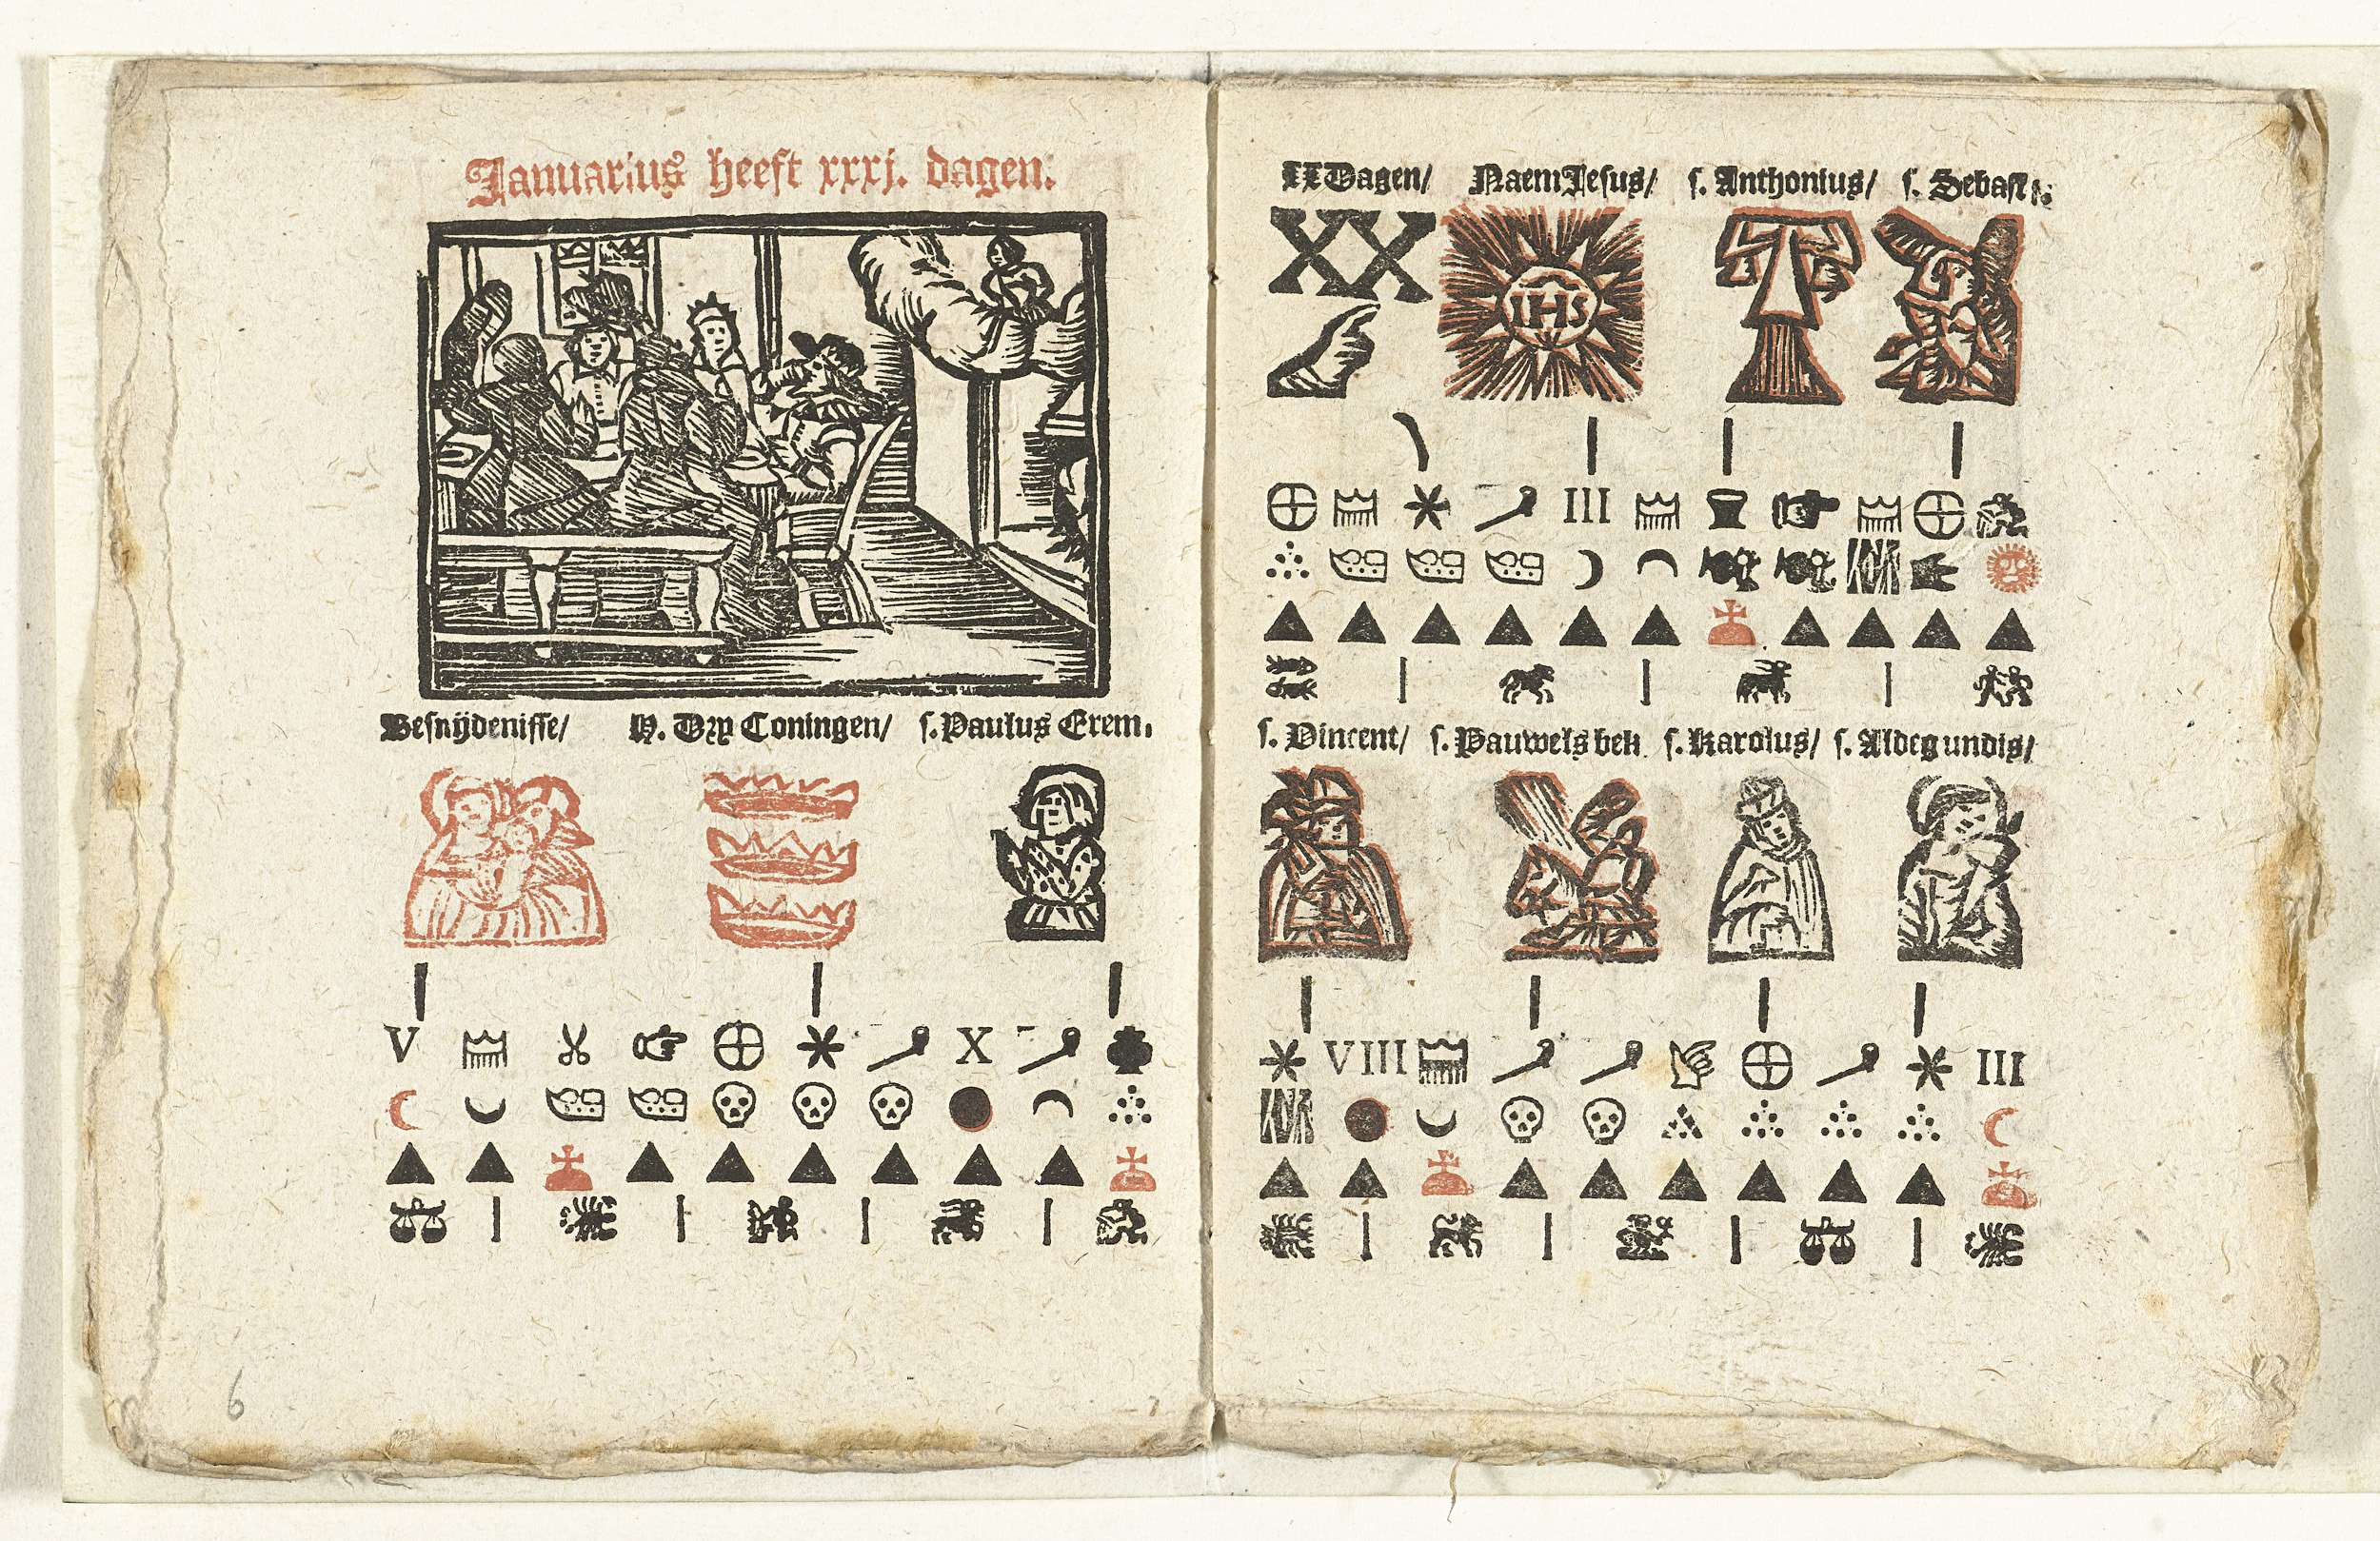 Januarius heeft xxxj. dagen:
Besnijdenisse/ H. Dry Coningen/ s. Paulus Erem.
V X
6
XX Dagen/ Naem Jesus/ s. Anthonius/ s. Sebast.
XX IHS
III
s. Vincent/ s. Pauwels bek s. Karolus/ s. Aldegundis/
VIII III